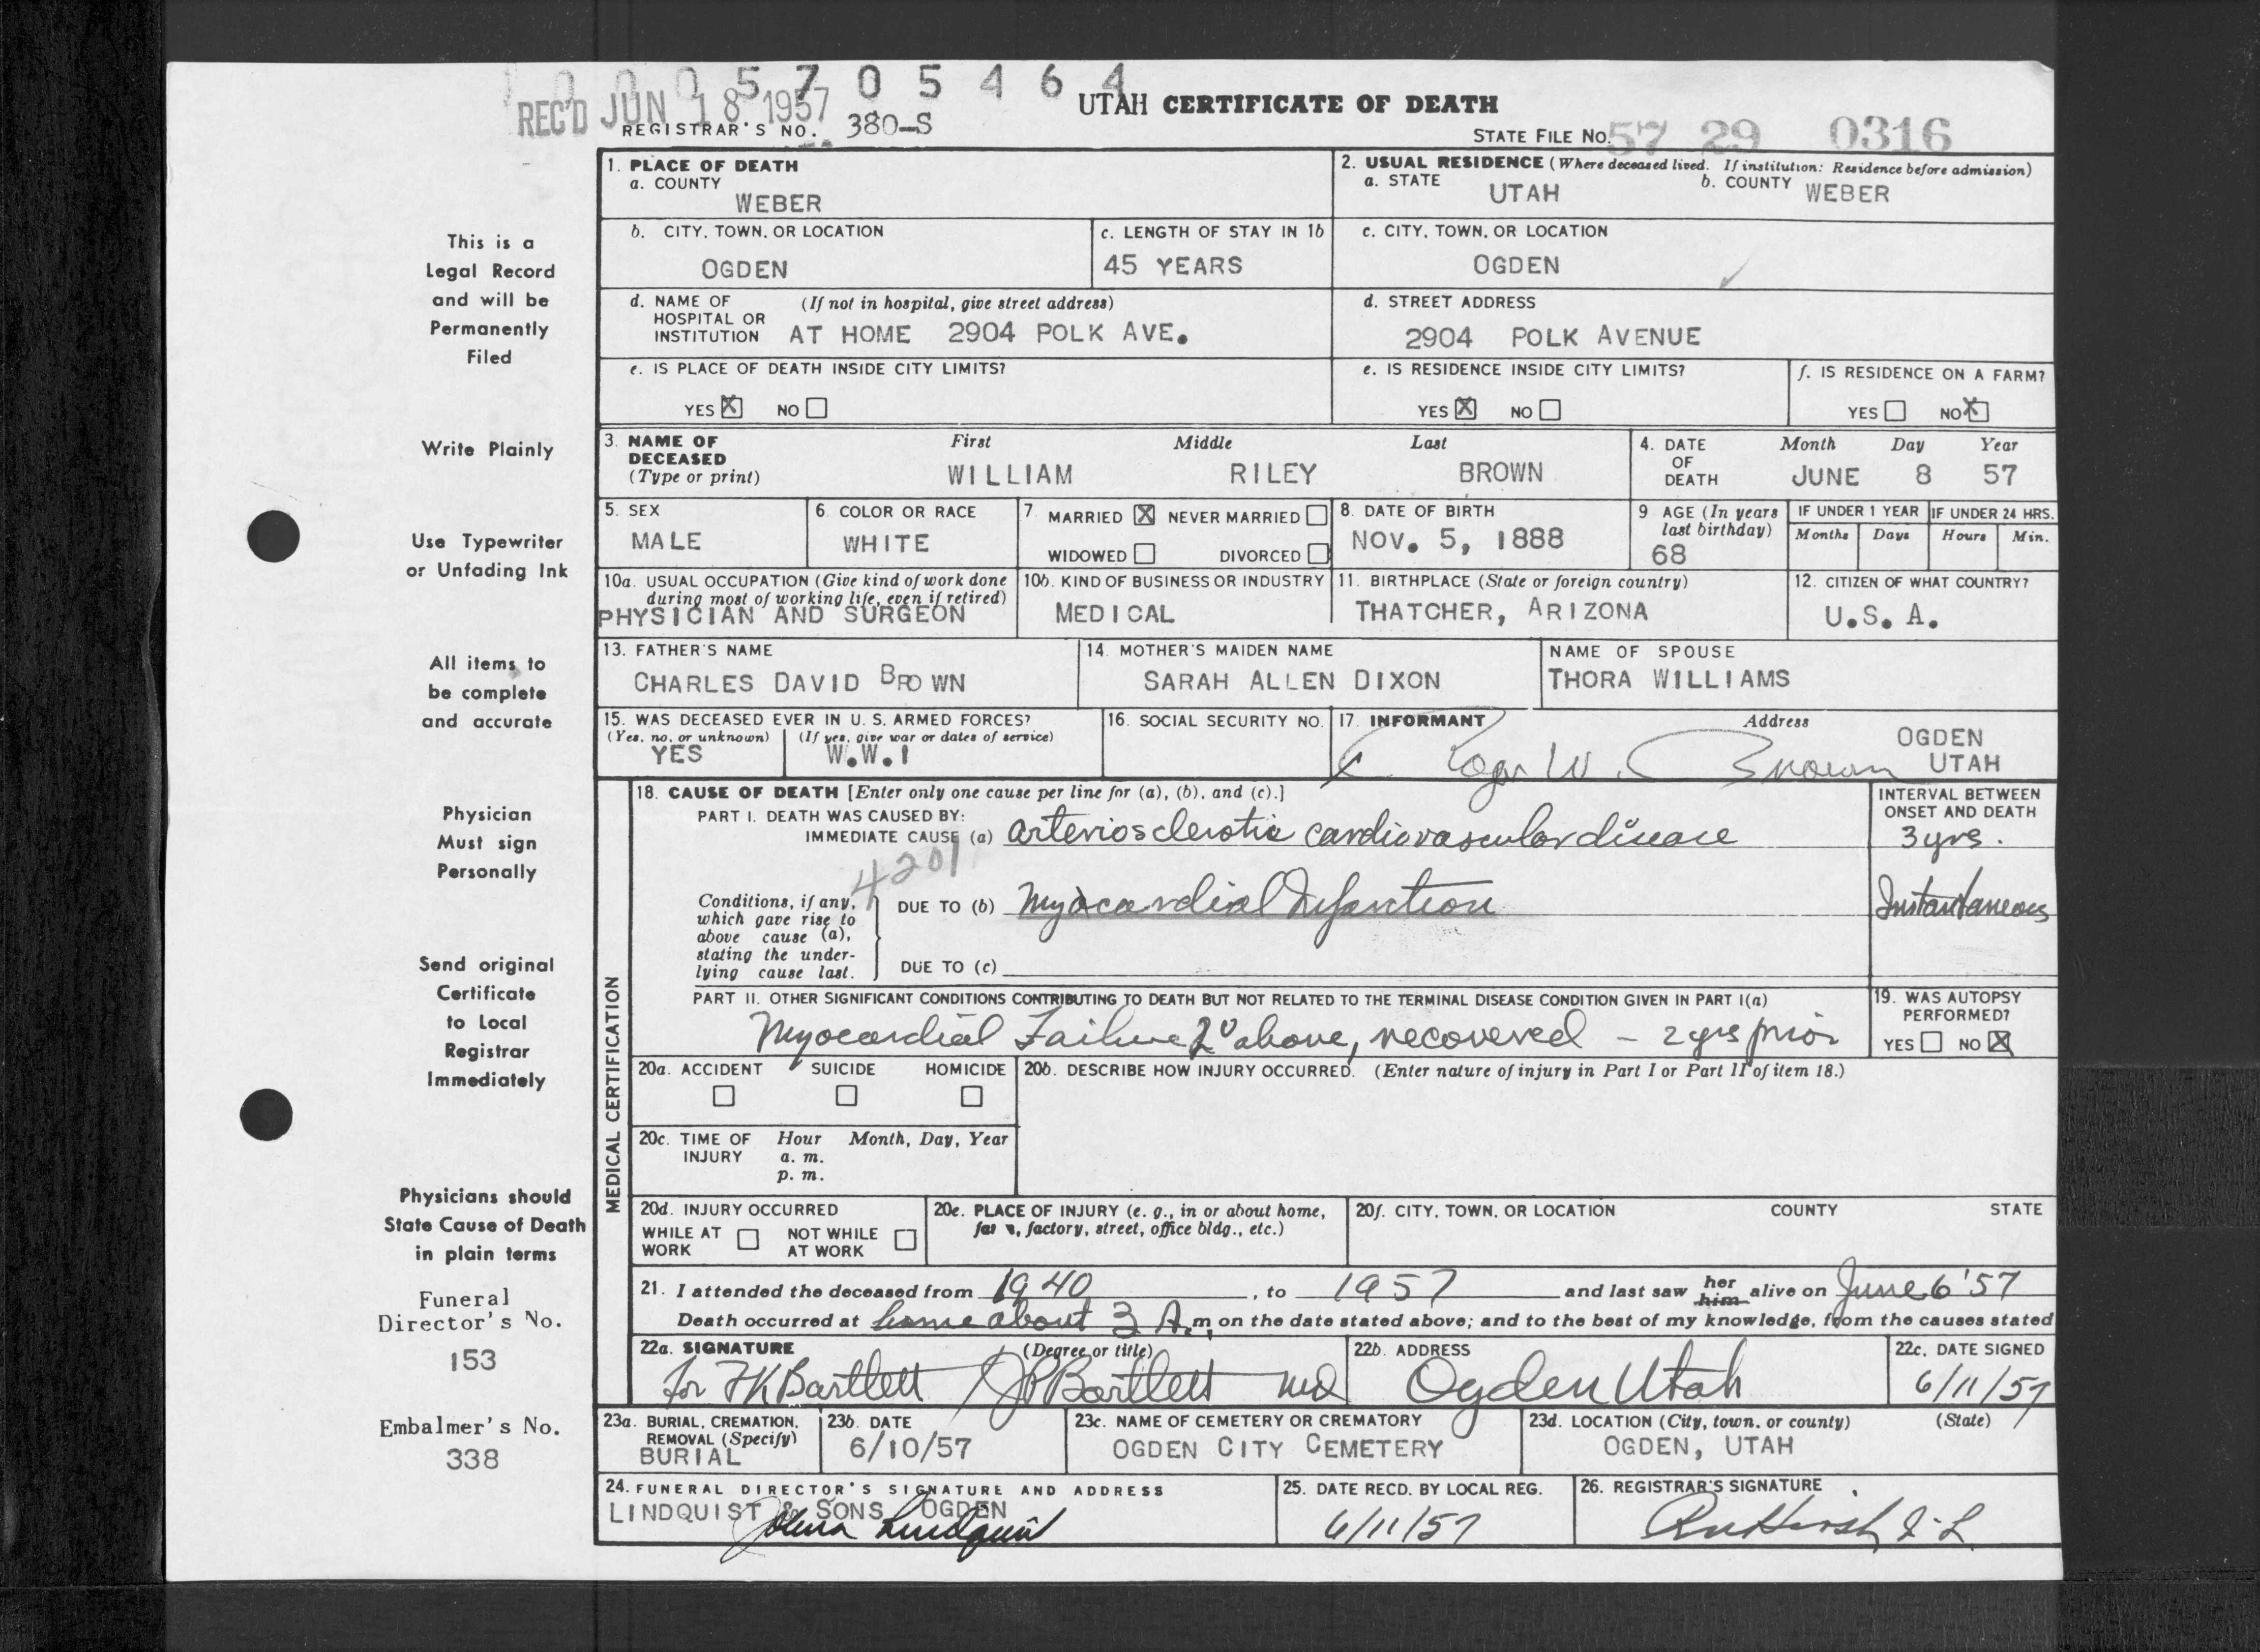 1 0 0 0 5 7 0 5 4 6 4
REC'D JUN 18 1957
UTAH CERTIFICATE OF DEATH
REGISTRAR'S NO. 380-S
STATE FILE NO. 57 29 0316
This is a
Legal Record
and will be
Permanently
Filed
1. PLACE OF DEATH
a. COUNTY
WEBER
2. USUAL RESIDENCE (Where deceased lived. If institution: Residence before admission)
a. STATE UTAH b. COUNTY WEBER
b. CITY, TOWN, OR LOCATION
OGDEN
c. LENGTH OF STAY IN 1b
45 YEARS
c. CITY, TOWN, OR LOCATION
OGDEN
d. NAME OF (If not in hospital, give street address)
HOSPITAL OR
INSTITUTION AT HOME 2904 POLK AVE.
d. STREET ADDRESS
2904 POLK AVENUE
e. IS PLACE OF DEATH INSIDE CITY LIMITS?
YES X NO
e. IS RESIDENCE INSIDE CITY LIMITS?
YES X NO
f. IS RESIDENCE ON A FARM?
YES NO X
Write Plainly
3. NAME OF DECEASED
(Type or print)
First Middle Last
WILLIAM RILEY BROWN
4. DATE OF DEATH
Month Day Year
JUNE 8 57
Use Typewriter
or Unfading Ink
5. SEX
MALE
6. COLOR OR RACE
WHITE
7. MARRIED X NEVER MARRIED
WIDOWED DIVORCED
8. DATE OF BIRTH
NOV. 5, 1888
9 AGE (In years
last birthday)
68
IF UNDER 1 YEAR
Months Days
IF UNDER 24 HRS.
Hours Min.
10a. USUAL OCCUPATION (Give kind of work done
during most of working life, even if retired)
PHYSICIAN AND SURGEON
10b. KIND OF BUSINESS OR INDUSTRY
MEDICAL
11. BIRTHPLACE (State or foreign country)
THATCHER, ARIZONA
12. CITIZEN OF WHAT COUNTRY?
U.S. A.
All items to
be complete
and accurate
13. FATHER'S NAME
CHARLES DAVID BROWN
14. MOTHER'S MAIDEN NAME
SARAH ALLEN DIXON
NAME OF SPOUSE
THORA WILLIAMS
15. WAS DECEASED EVER IN U. S. ARMED FORCES?
(Yes, no, or unknown) (If yes, give war or dates of service)
YES W.W.I
16. SOCIAL SECURITY NO.
17. INFORMANT Address
Roger W. Brown
OGDEN
UTAH
Physician
Must sign
Personally
MEDICAL CERTIFICATION
18. CAUSE OF DEATH [Enter only one cause per line for (a), (b), and (c).]
PART I. DEATH WAS CAUSED BY:
IMMEDIATE CAUSE (a) arteriosclerotic cardiovascular disease
INTERVAL BETWEEN
ONSET AND DEATH
3 yrs.
4201
Conditions, if any,
which gave rise to
above cause (a),
stating the under-
lying cause last.
DUE TO (b) Myocardial Infarction
Instantaneous
DUE TO (c)
Send original
Certificate
to Local
Registrar
Immediately
PART II. OTHER SIGNIFICANT CONDITIONS CONTRIBUTING TO DEATH BUT NOT RELATED TO THE TERMINAL DISEASE CONDITION GIVEN IN PART I(a)
Myocardial Failure 2° above, recovered - 2 yrs prior
19. WAS AUTOPSY
PERFORMED?
YES NO X
20a. ACCIDENT SUICIDE HOMICIDE
20b. DESCRIBE HOW INJURY OCCURRED. (Enter nature of injury in Part I or Part II of item 18.)
20c. TIME OF INJURY
Hour Month, Day, Year
a. m.
p. m.
Physicians should
State Cause of Death
in plain terms
20d. INJURY OCCURRED
WHILE AT WORK NOT WHILE AT WORK
20e. PLACE OF INJURY (e. g., in or about home,
farm, factory, street, office bldg., etc.)
20f. CITY, TOWN, OR LOCATION COUNTY STATE
21. I attended the deceased from 1940, to 1957 and last saw her him alive on June 6 '57
Death occurred at home about 3 A.m, on the date stated above; and to the best of my knowledge, from the causes stated
Funeral
Director's No.
153
22a. SIGNATURE (Degree or title)
for FK Bartlett JP Bartlett MD
22b. ADDRESS
Ogden Utah
22c. DATE SIGNED
6/11/57
Embalmer's No.
338
23a. BURIAL, CREMATION,
REMOVAL (Specify)
BURIAL
23b. DATE
6/10/57
23c. NAME OF CEMETERY OR CREMATORY
OGDEN CITY CEMETERY
23d. LOCATION (City, town, or county) (State)
OGDEN, UTAH
24. FUNERAL DIRECTOR'S SIGNATURE AND ADDRESS
LINDQUIST & SONS OGDEN
Lindquist
25. DATE RECD. BY LOCAL REG.
6/11/57
26. REGISTRAR'S SIGNATURE